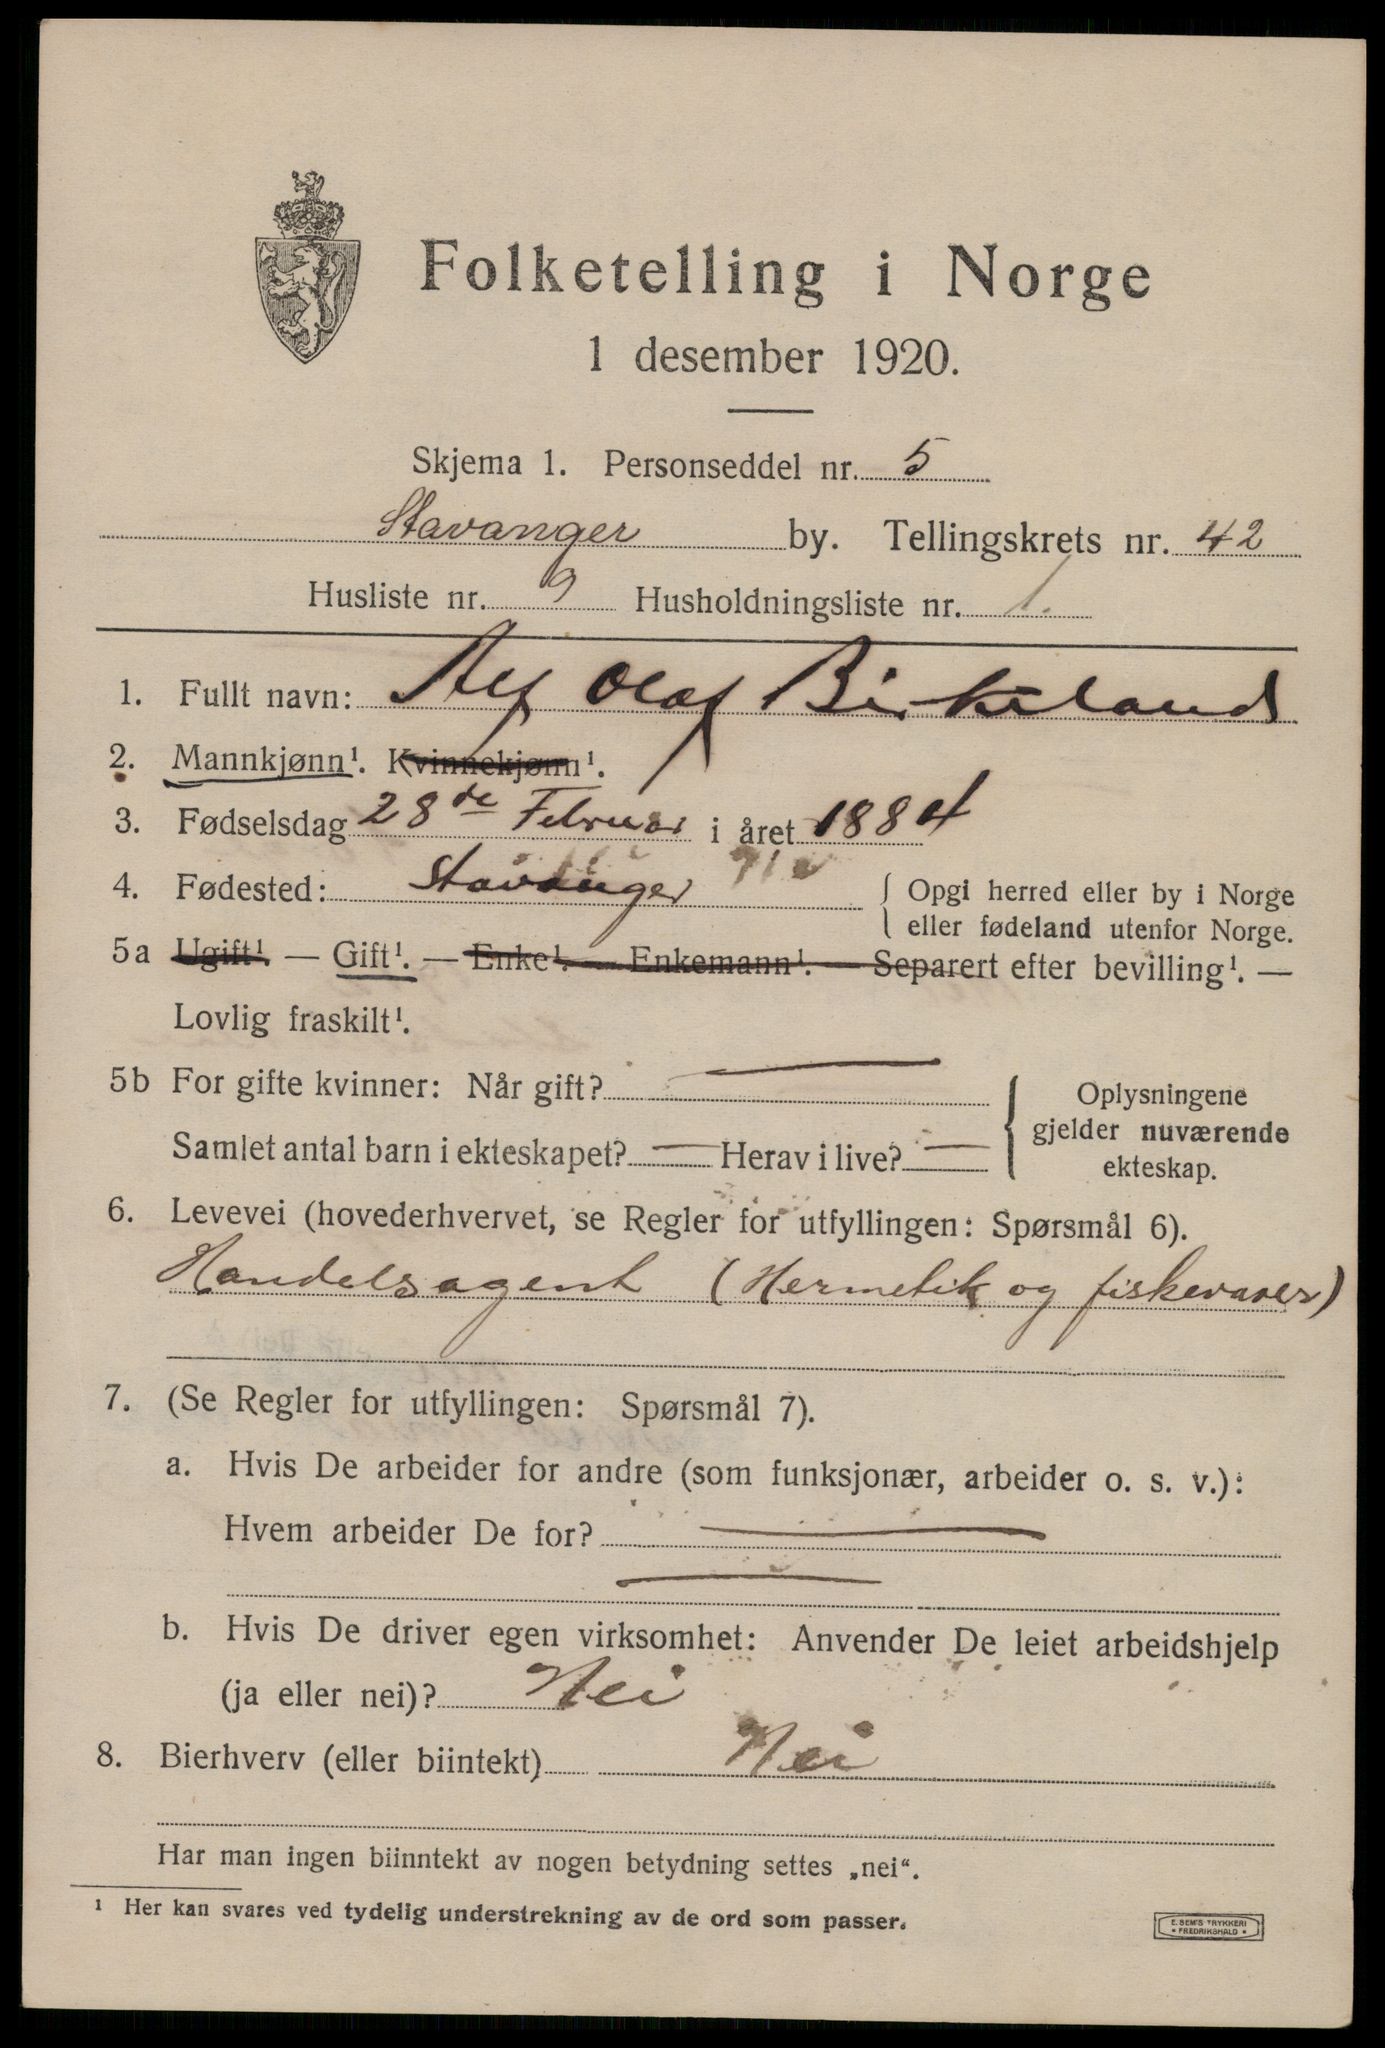 Folketelling i Norge
1 desember 1920.
Skjema 1. Personseddel nr. 5
Stavanger by. Tellingskrets nr. 42
Husliste nr. 9 Husholdningsliste nr. 1.
1. Fullt navn: Alf Olaf Birkeland
2. Mannkjønn¹. Kvinnekjønn¹.
3. Fødselsdag 28de Februar i året 1884
4. Fødested: Stavanger { Opgi herred eller by i Norge
eller fødeland utenfor Norge.
5a Ugift¹. — Gift¹. — Enke¹. — Enkemann¹. — Separert efter bevilling¹. —
Lovlig fraskilt¹.
5b For gifte kvinner: Når gift? —
Samlet antal barn i ekteskapet? — Herav i live? —
} Oplysningene
gjelder nuværende
ekteskap.
6. Levevei (hovederhvervet, se Regler for utfyllingen: Spørsmål 6).
Handelsagent (Hermetik og fiskevarer)
7. (Se Regler for utfyllingen: Spørsmål 7).
a. Hvis De arbeider for andre (som funksjonær, arbeider o. s. v.):
Hvem arbeider De for? —
—
b. Hvis De driver egen virksomhet: Anvender De leiet arbeidshjelp
(ja eller nei)? Nei
8. Bierhverv (eller biintekt) Nei
Har man ingen biinntekt av nogen betydning settes „nei“.
¹ Her kan svares ved tydelig understrekning av de ord som passer.
E. SEM'S TRYKKERI
* FREDRIKSHALD *